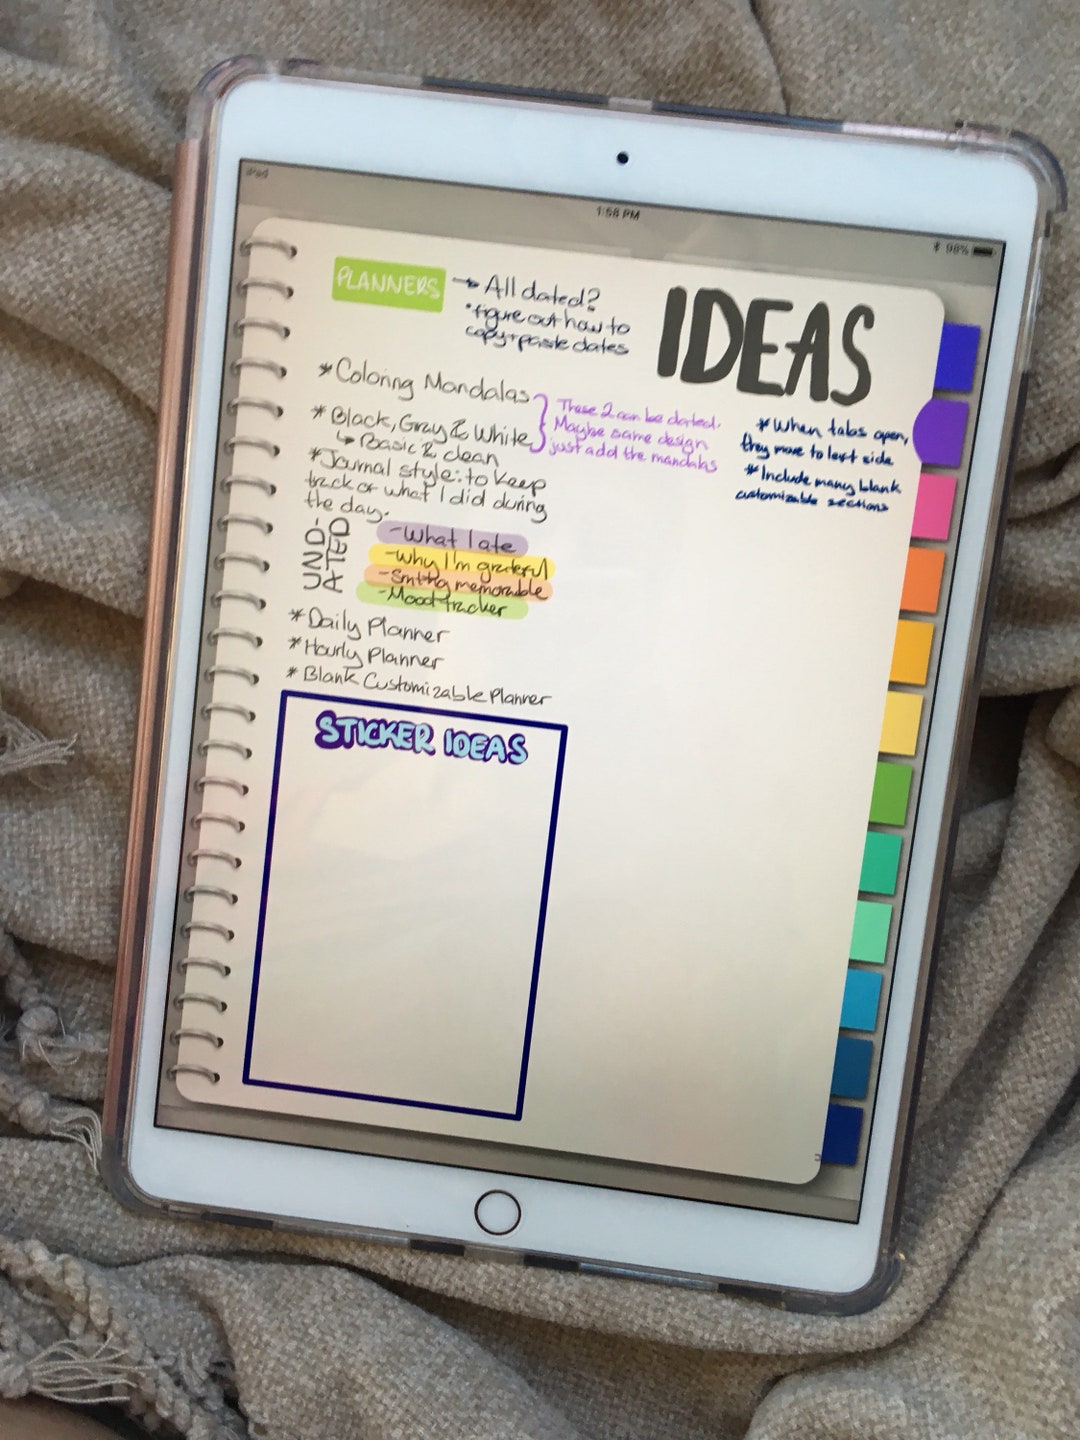 iPad
1:58 PM
98%
PLANNERS → All dated?
*figure out how to
copy+paste dates
IDEAS
* Coloring Mandalas
* Black, Gray & White
↳ Basic & clean
These 2 can be dated.
Maybe same design
just add the mandalas
* When tabs open,
they move to left side
* Include many blank
customizable sections
* Journal style: to keep
track of what I did during
the day.
UND-
ATED
- What I ate
- Why I'm grateful
- Smthg memorable
- Mood tracker
* Daily Planner
* Hourly Planner
* Blank Customizable Planner
STICKER IDEAS